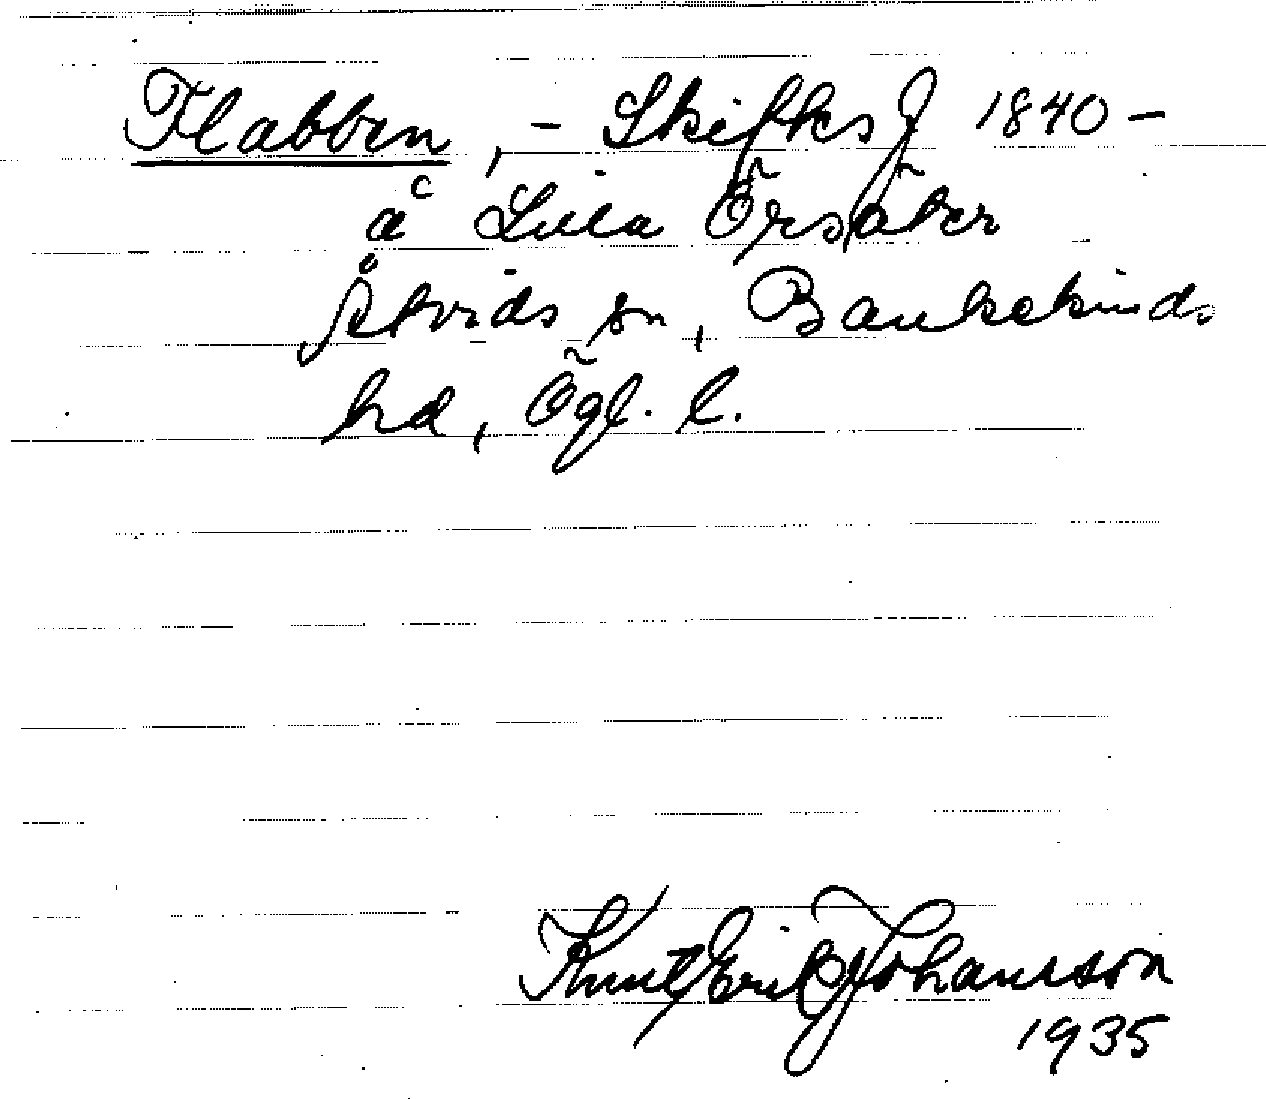 Flabben, – Skifks J 1840 –
å Lilla Örsäter
Åtvids sn, Bankekinds
hd, Ögl. l.
Knut Erik Johansson
1935